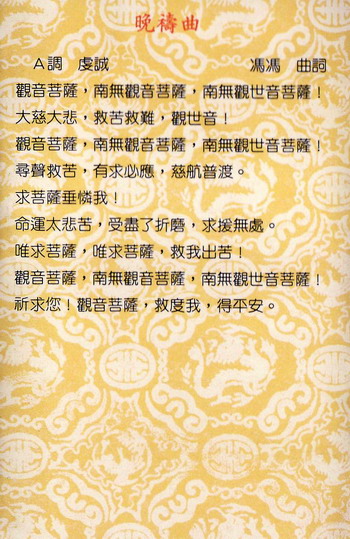 晚禱曲
A調 虔誠 馮馮 曲詞
觀音菩薩，南無觀音菩薩，南無觀世音菩薩！
大慈大悲，救苦救難，觀世音！
觀音菩薩，南無觀音菩薩，南無觀世音菩薩！
尋聲救苦，有求必應，慈航普渡。
求菩薩垂憐我！
命運太悲苦，受盡了折磨，求援無處。
唯求菩薩，唯求菩薩，救我出苦！
觀音菩薩，南無觀音菩薩，南無觀世音菩薩！
祈求您！觀音菩薩，救度我，得平安。